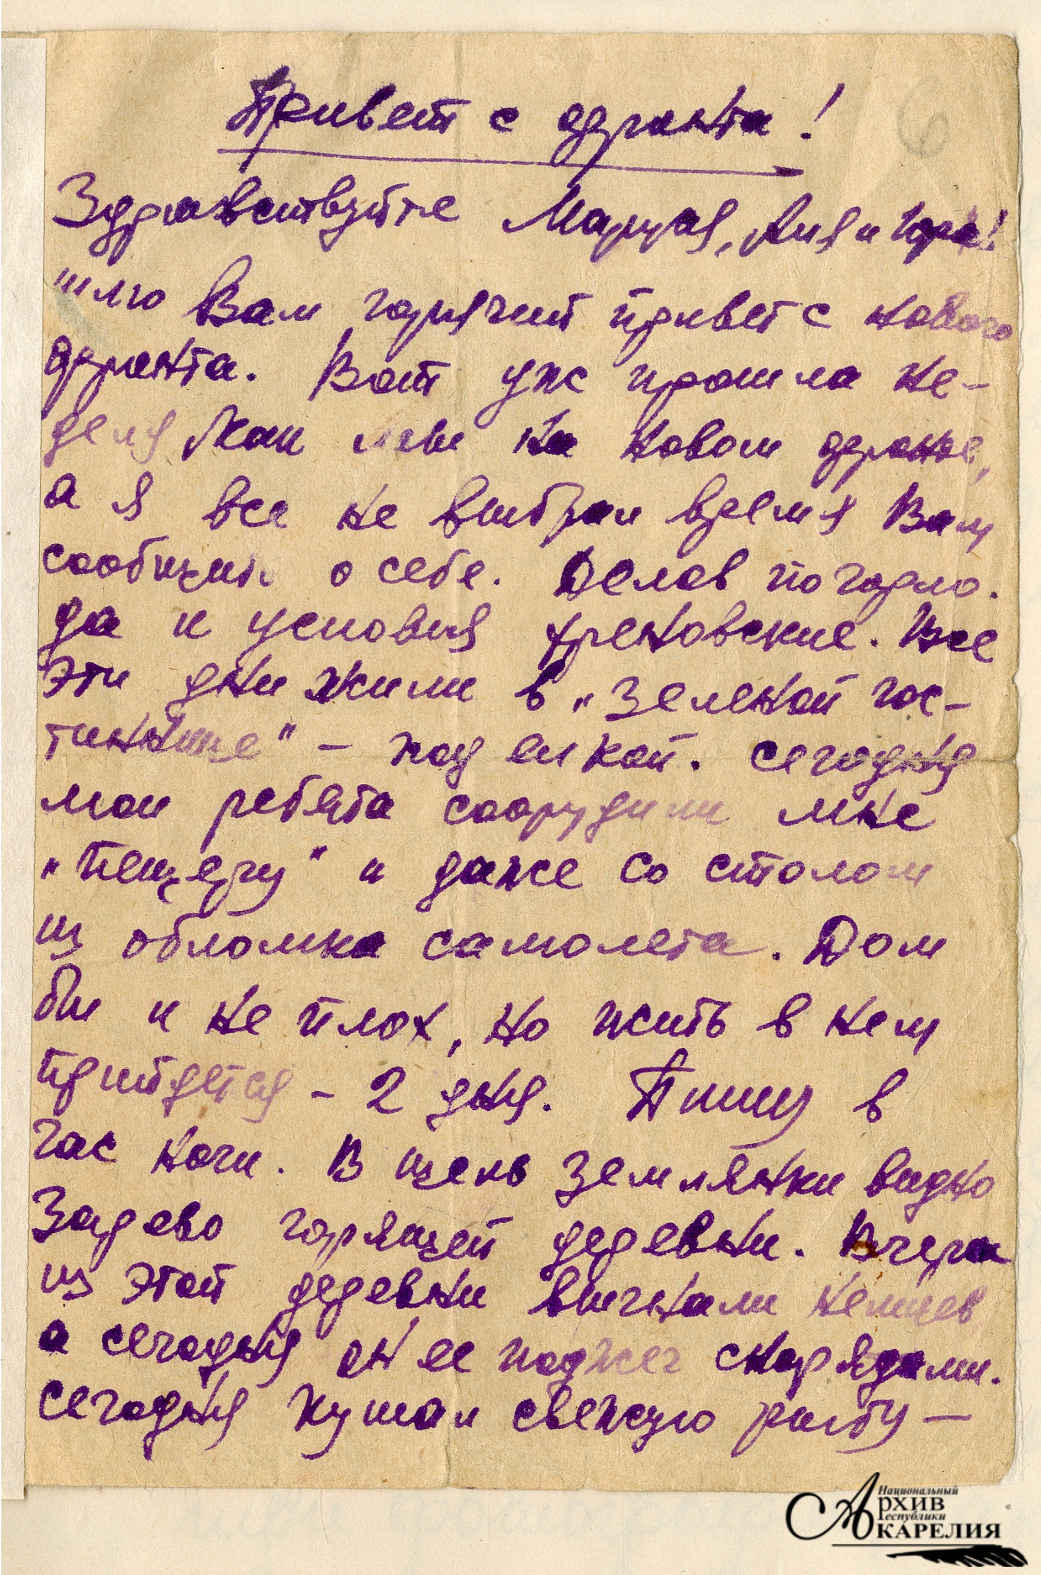 Привет с фронта!
Здравствуйте Маруся, Аня и Юра!
шлю Вам горячий привет с нового
фронта. Вот уже прошла не-
деля как мы на новом фронте,
а я все не выбрал время Вам
сообщить о себе. Делов по горло.
да и условия хреновские. Все
эти дни жили в „зеленой гос-
тиннице" – под елкой. сегодня
мои ребята соорудили мне
„пещеру" и даже со столом
из обломка самолета. Дом
бы и не плох, но жить в нем
прийдется – 2 дня. Пишу в
час ночи. В щель землянки видно
Зарево горящей деревни. Вчера
из этой деревни выгнали немцев
а сегодня он ее поджег снарядами.
сегодня кушал свежую рыбу –
6
Национальный
Архив
Республики
Карелия